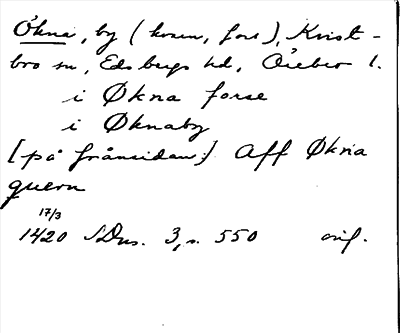 Økna, by (kvarn, fors), Kvist-
bro sn, Edsbergs hd, Örebro l.
i Økna forse
i Øknaby
[på frånsidan:] Aff Økna
quern
17/3
1420 SDns. 3, s. 550 orig.